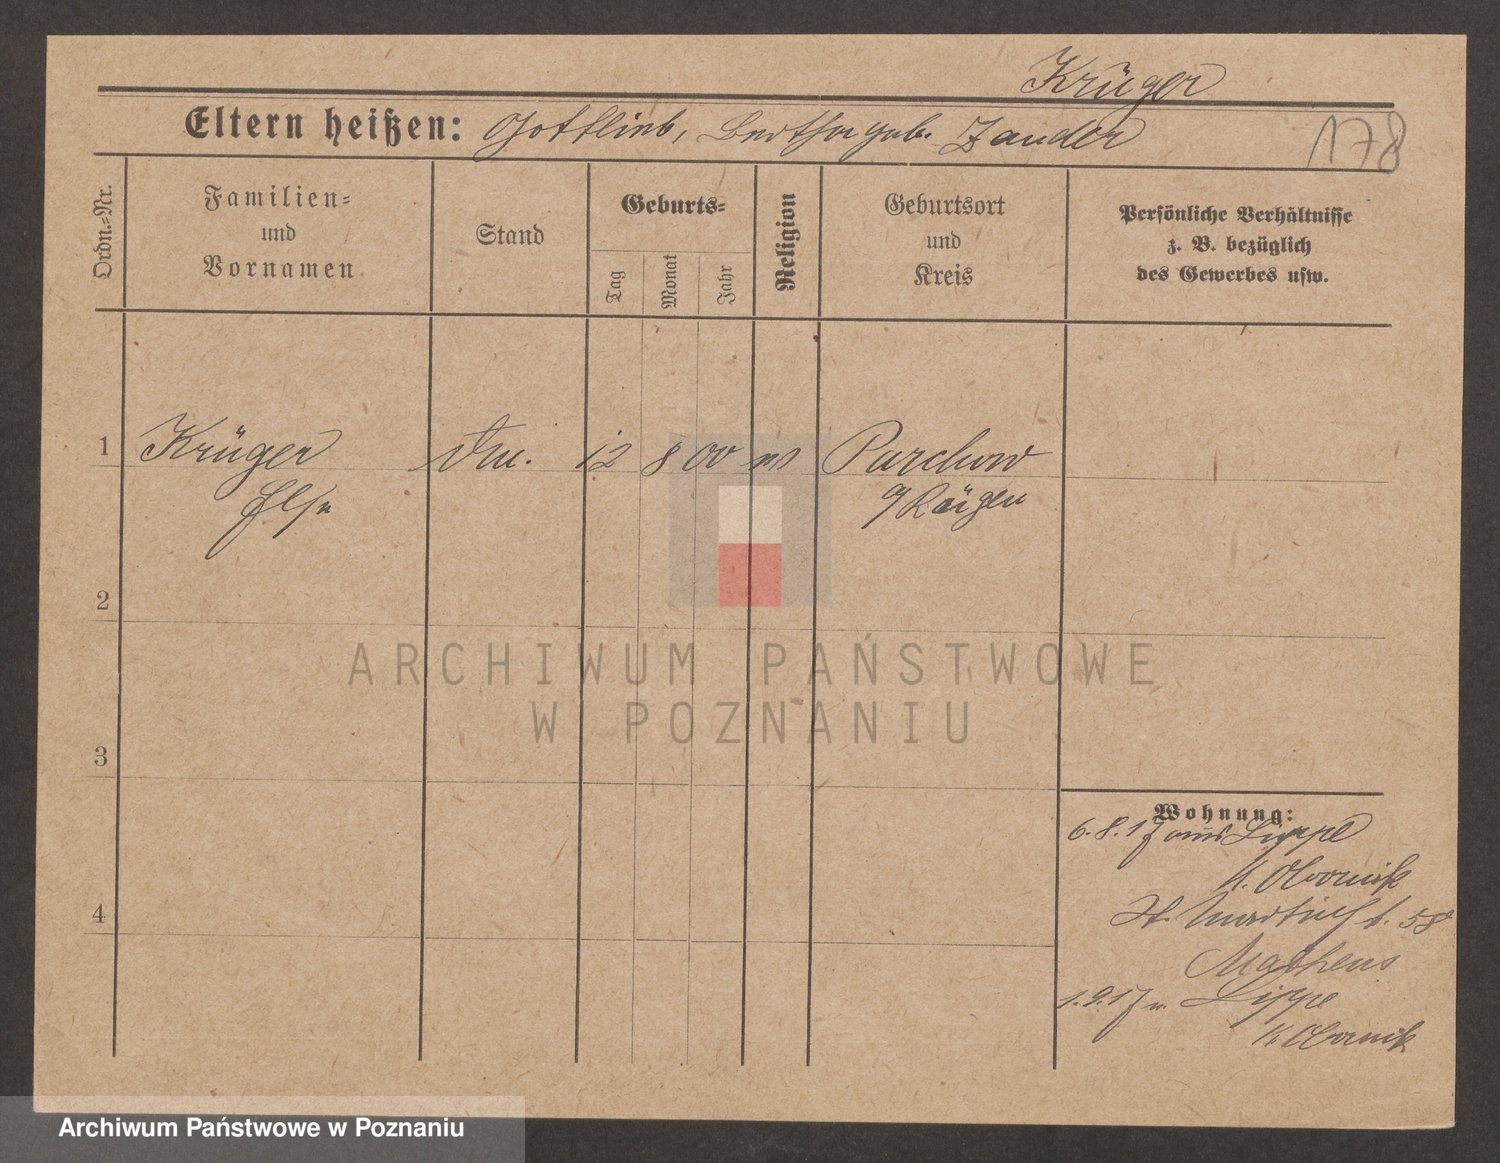 Krüger
Eltern heißen: Gottlieb, Bertha geb. Zander
178
Ordn.-Nr.
Familien-
und
Vornamen
Stand
Geburts-
Tag
Monat
Jahr
Religion
Geburtsort
und
Kreis
Persönliche Verhältnisse
z. B. bezüglich
des Gewerbes usw.
1 Krüger 12 8 00 Parchow
Else Rügen
2
3
4
ARCHIWUM PAŃSTWOWE
W POZNANIU
Wohnung:
6.8.17 aus Lippe
K. Obornik
St. Martinstr. 58
1.9.17 n. Lippe
K. Obornik
Archiwum Państwowe w Poznaniu